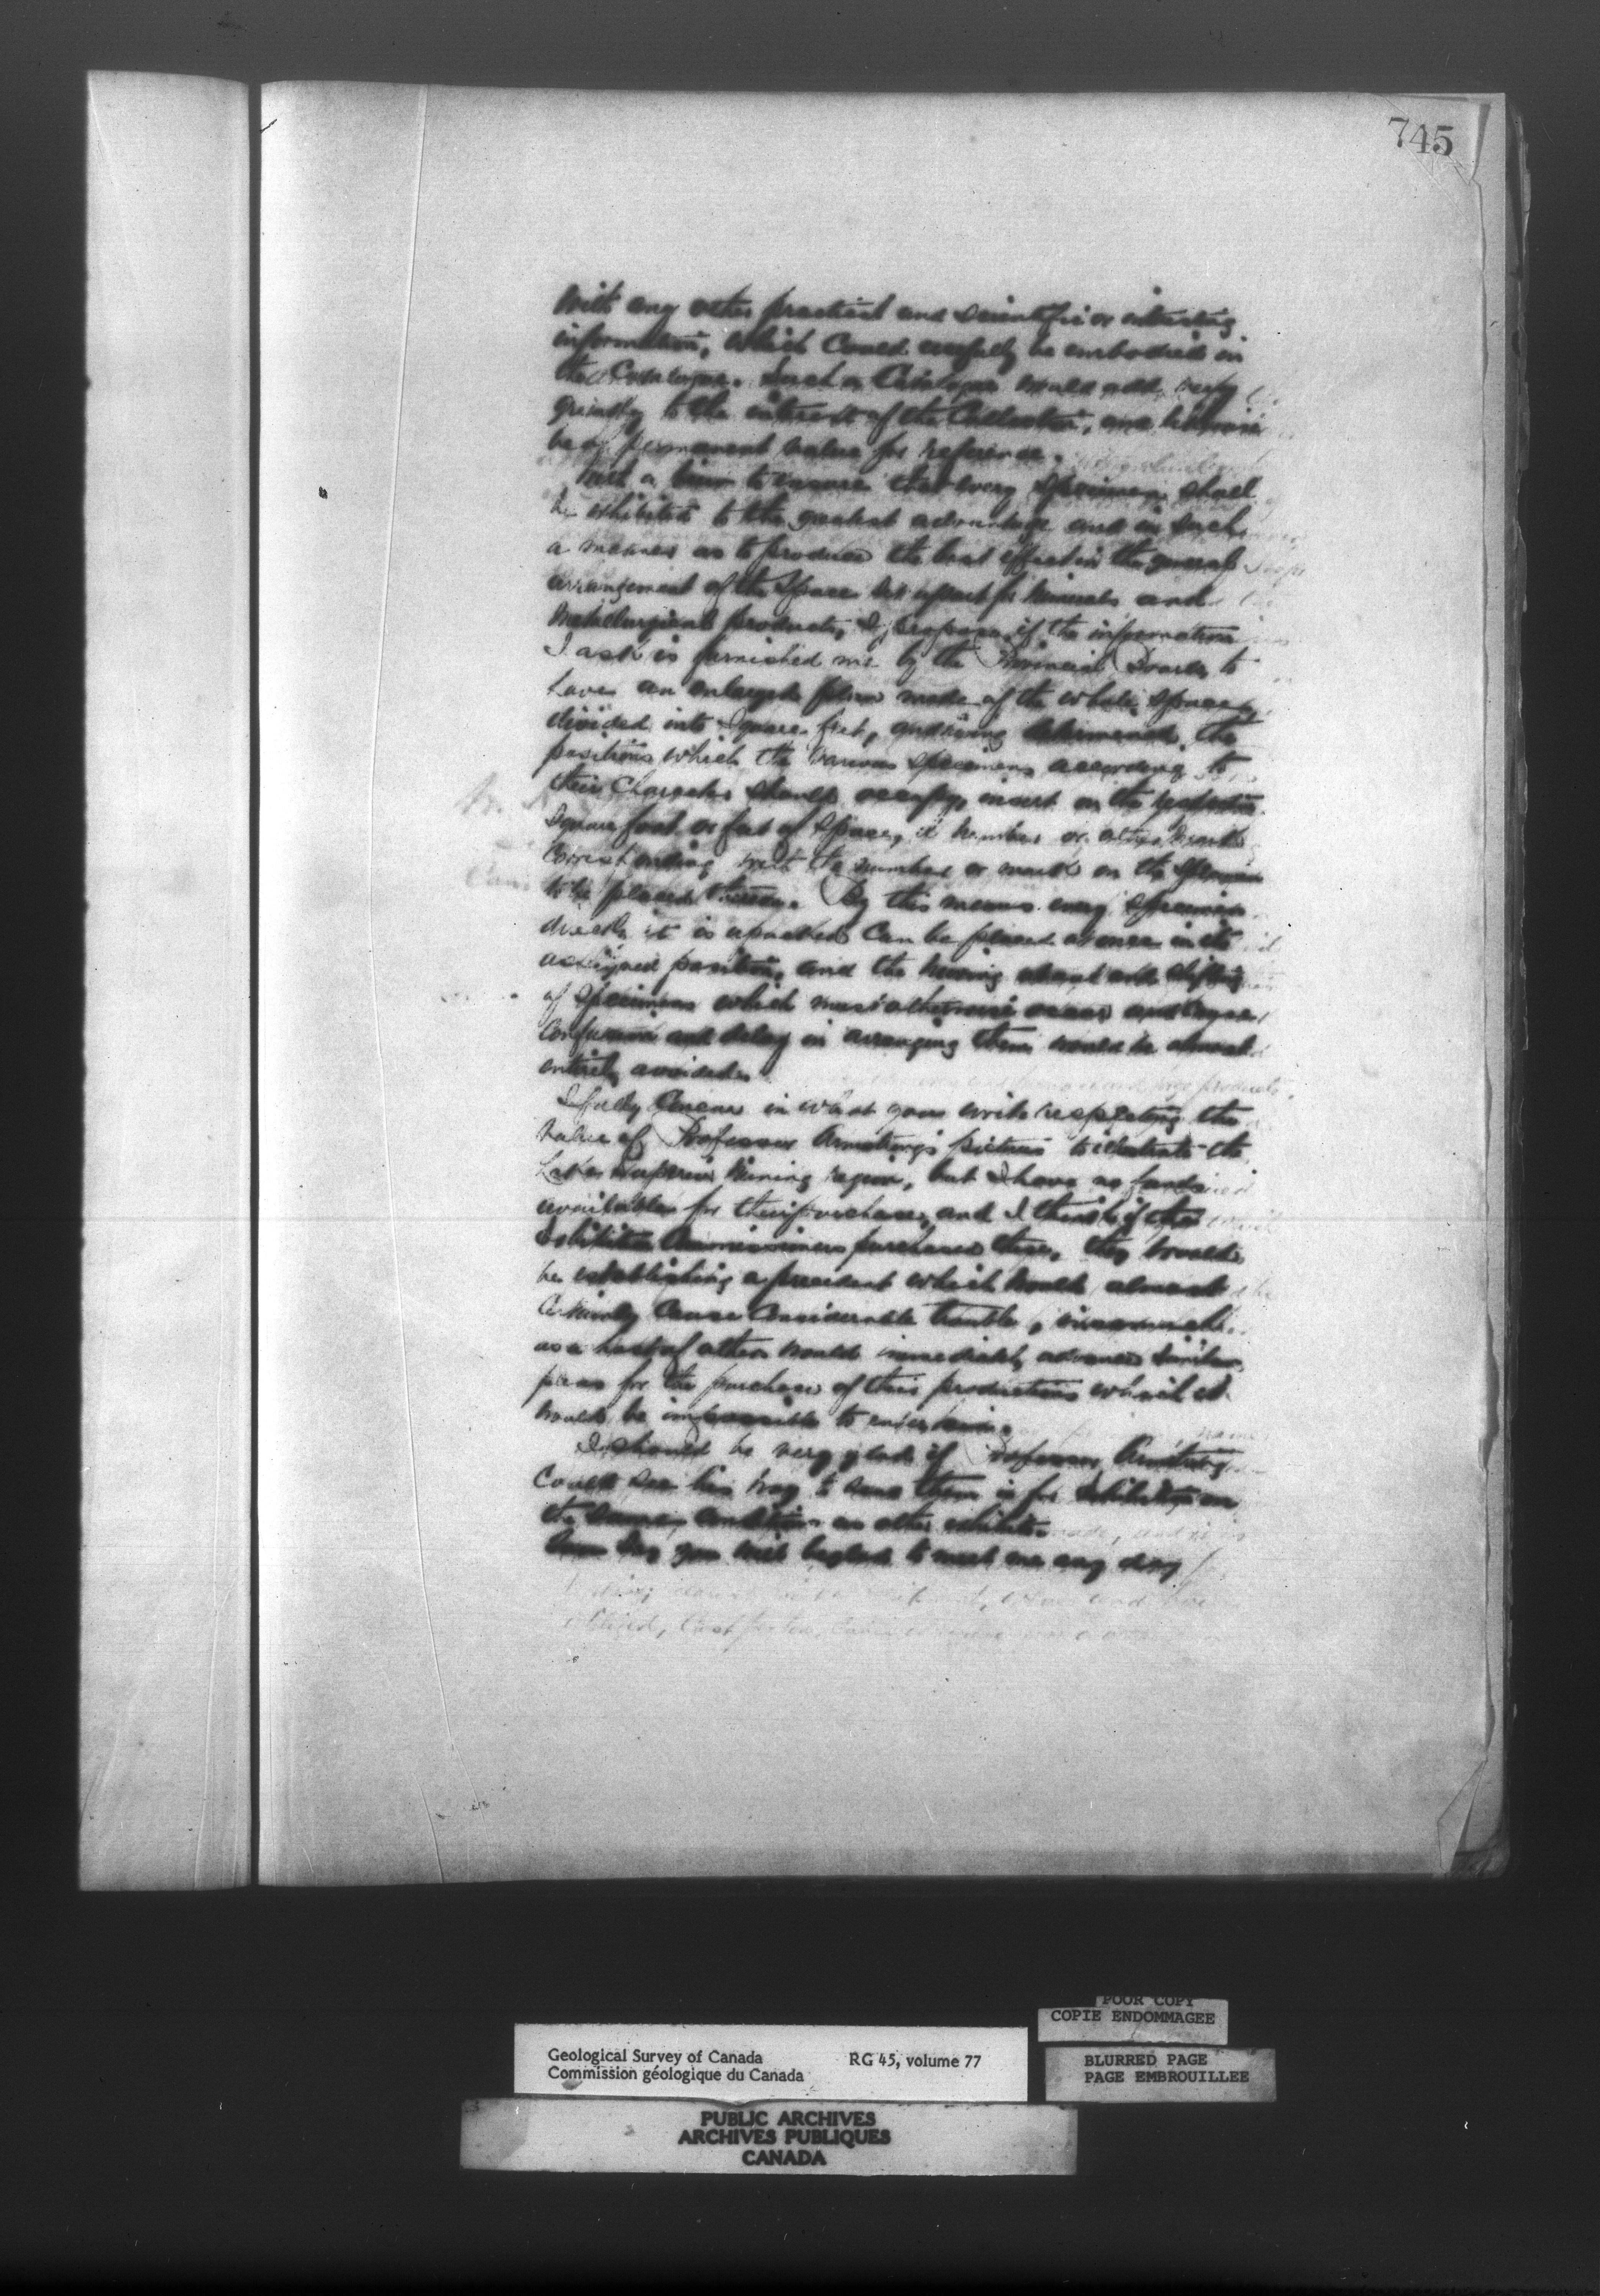 745
with any other practical and scientific or interesting
information, which could usefully be embodied in
the Catalogue. Such a Catalogue would add very
greatly to the interest of the Collection, and likewise
be of permanent value for reference.
With a view to ensure that every specimen shall
be exhibited to the greatest advantage and in such
a manner as to produce the best effect in the general
arrangement of the space set apart for Minerals and
Metallurgical products, I propose, if the information
I ask is furnished me by the Provincial Boards, to
have an enlarged plan made of the whole space
divided into square feet, and having determined the
positions which the various specimens according to
their Character should occupy, insert on the respective
square foot or feet of space, a number or other mark
corresponding with the number or mark on the specimen
to be placed thereon. By this means every specimen
directly it is unpacked can be placed at once in its
assigned position, and the moving about and shifting
of specimens which must otherwise occur and cause
confusion and delay in arranging them would be almost
entirely avoided.
I fully concur in what you write respecting the
value of Professor Armstrong's pictures to illustrate the
Lake Superior Mining region, but I have no funds
available for their purchase, and I think if the
Exhibition Commissioners purchased these, they would
be establishing a precedent which would almost
certainly cause considerable trouble, inasmuch
as a host of others would immediately advance similar
pleas for the purchase of their productions which it
would be impossible to entertain.
I should be very glad if Professor Armstrong
could see his way to send them in for Exhibition on
the same conditions as other exhibits.
you will be glad to meet me any day
Geological Survey of Canada RG 45, volume 77
Commission géologique du Canada
POOR COPY
COPIE ENDOMMAGEE
BLURRED PAGE
PAGE EMBROUILLEE
PUBLIC ARCHIVES
ARCHIVES PUBLIQUES
CANADA